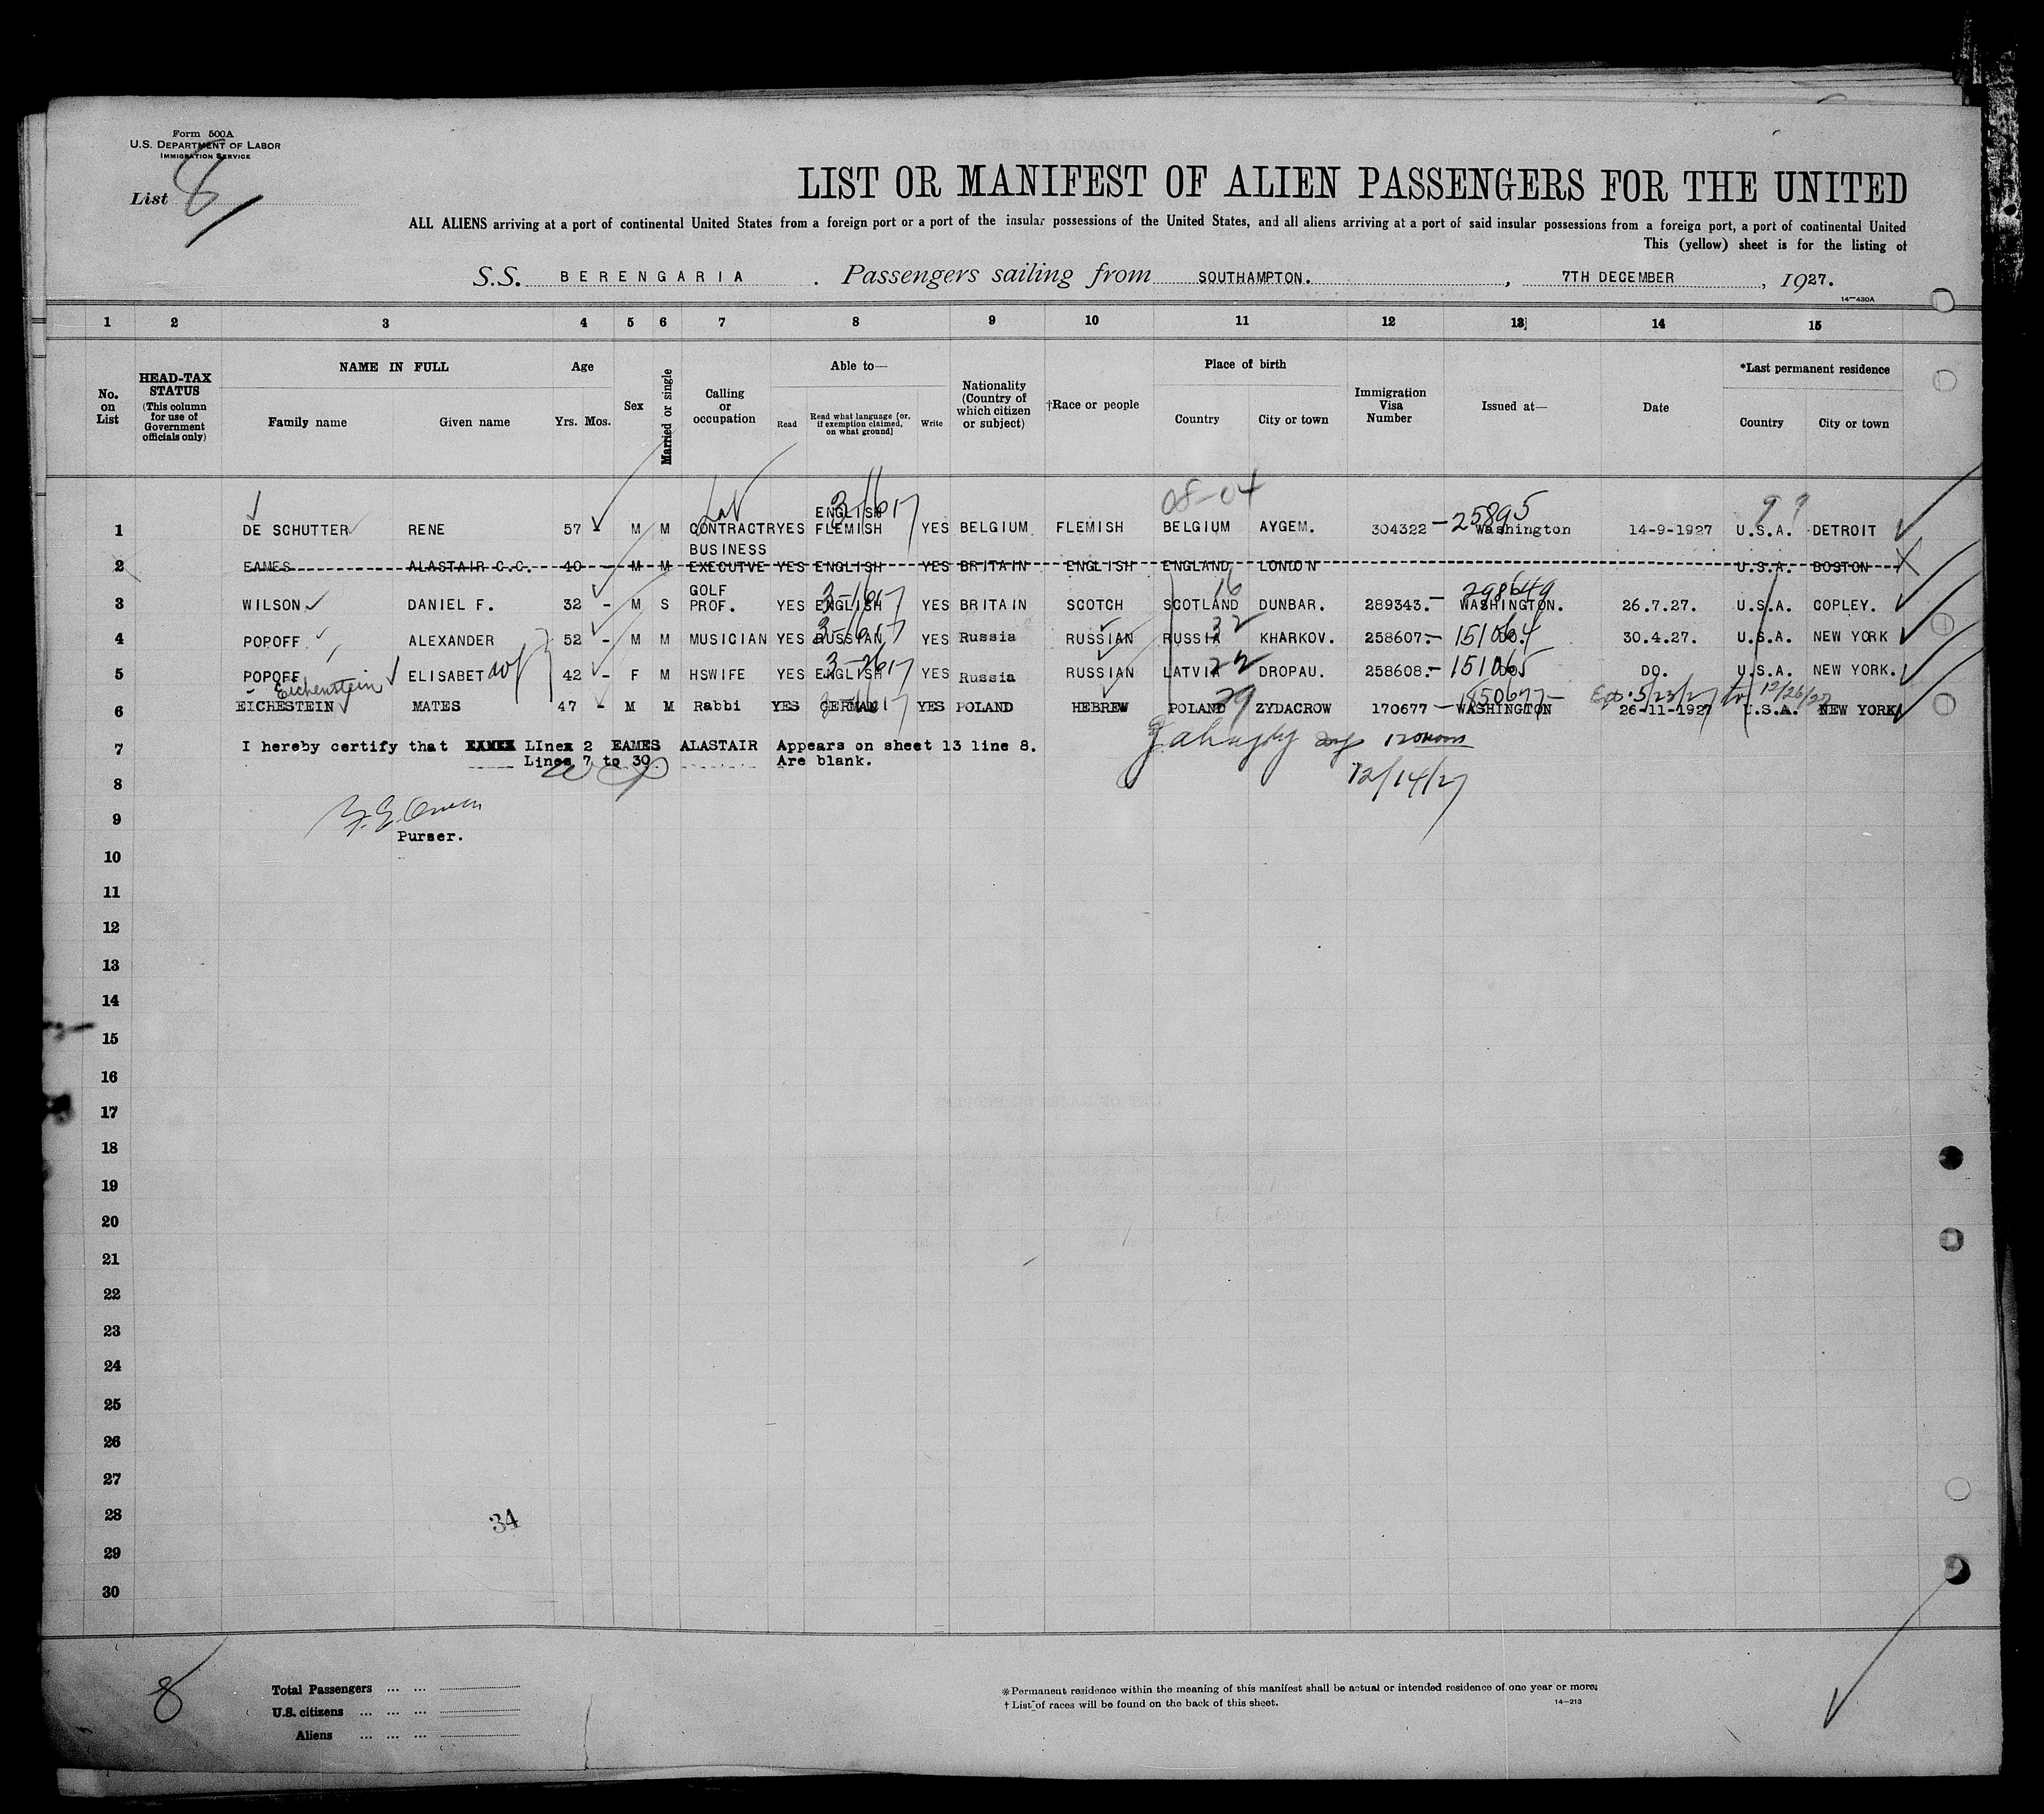 Form 500A
U.S. DEPARTMENT OF LABOR
IMMIGRATION SERVICE
List 8
LIST OR MANIFEST OF ALIEN PASSENGERS FOR THE UNITED
ALL ALIENS arriving at a port of continental United States from a foreign port or a port of the insular possessions of the United States, and all aliens arriving at a port of said insular possessions from a foreign port, a port of continental United
This (yellow) sheet is for the listing of
S.S. BERENGARIA . Passengers sailing from SOUTHAMPTON. , 7TH DECEMBER , 1927.
14-430A
1 2 3 4 5 6 7 8 9 10 11 12 13 14 15
No. on List
HEAD-TAX STATUS (This column for use of Government officials only)
NAME IN FULL
Family name Given name
Age
Yrs. Mos.
Sex
Married or single
Calling or occupation
Able to—
Read Read what language [or, if exemption claimed, on what ground] Write
Nationality (Country of which citizen or subject)
†Race or people
Place of birth
Country City or town
Immigration Visa Number
Issued at—
Date
*Last permanent residence
Country City or town
08-04
ENGLISH 25895
1 DE SCHUTTER RENE 57 - M M CONTRACTR YES FLEMISH YES BELGIUM FLEMISH BELGIUM AYGEM. 304322 - Washington 14-9-1927 U.S.A. DETROIT
BUSINESS
2 EAMES ALASTAIR C.C. 40 - M M EXECUTVE YES ENGLISH YES BRITAIN ENGLISH ENGLAND LONDON U.S.A. BOSTON
GOLF 3-1617 16 298649
3 WILSON DANIEL F. 32 - M S PROF. YES ENGLISH YES BRITAIN SCOTCH SCOTLAND DUNBAR. 289343. - WASHINGTON. 26.7.27. U.S.A. COPLEY.
3-1617 32 151064
4 POPOFF ALEXANDER 52 - M M MUSICIAN YES RUSSIAN YES Russia RUSSIAN RUSSIA KHARKOV. 258607. - DO. 30.4.27. U.S.A. NEW YORK
3-2617 22 151065
5 POPOFF ELISABET wf 42 - F M HSWIFE YES ENGLISH YES Russia RUSSIAN LATVIA DROPAU. 258608. - DO. DO. U.S.A. NEW YORK.
Eichenstein 29 150677 Ext. 5/23/27 to 12/26/27
6 EICHESTEIN MATES 47 - M M Rabbi YES GERMAN YES POLAND HEBREW POLAND ZYDACROW 170677 - WASHINGTON 26-11-1927 U.S.A. NEW YORK
7 I hereby certify that LInes 2 EAMES ALASTAIR Appears on sheet 13 line 8.
Lines 7 to 30. Are blank.
12/14/27
8
9
Purser.
10
11
12
13
14
15
16
17
18
19
20
21
22
23
24
25
26
27
28 34
29
30
8
Total Passengers ... ...
U.S. citizens ... ... ...
Aliens ... ... ...
*Permanent residence within the meaning of this manifest shall be actual or intended residence of one year or more.
† List of races will be found on the back of this sheet.
14-213